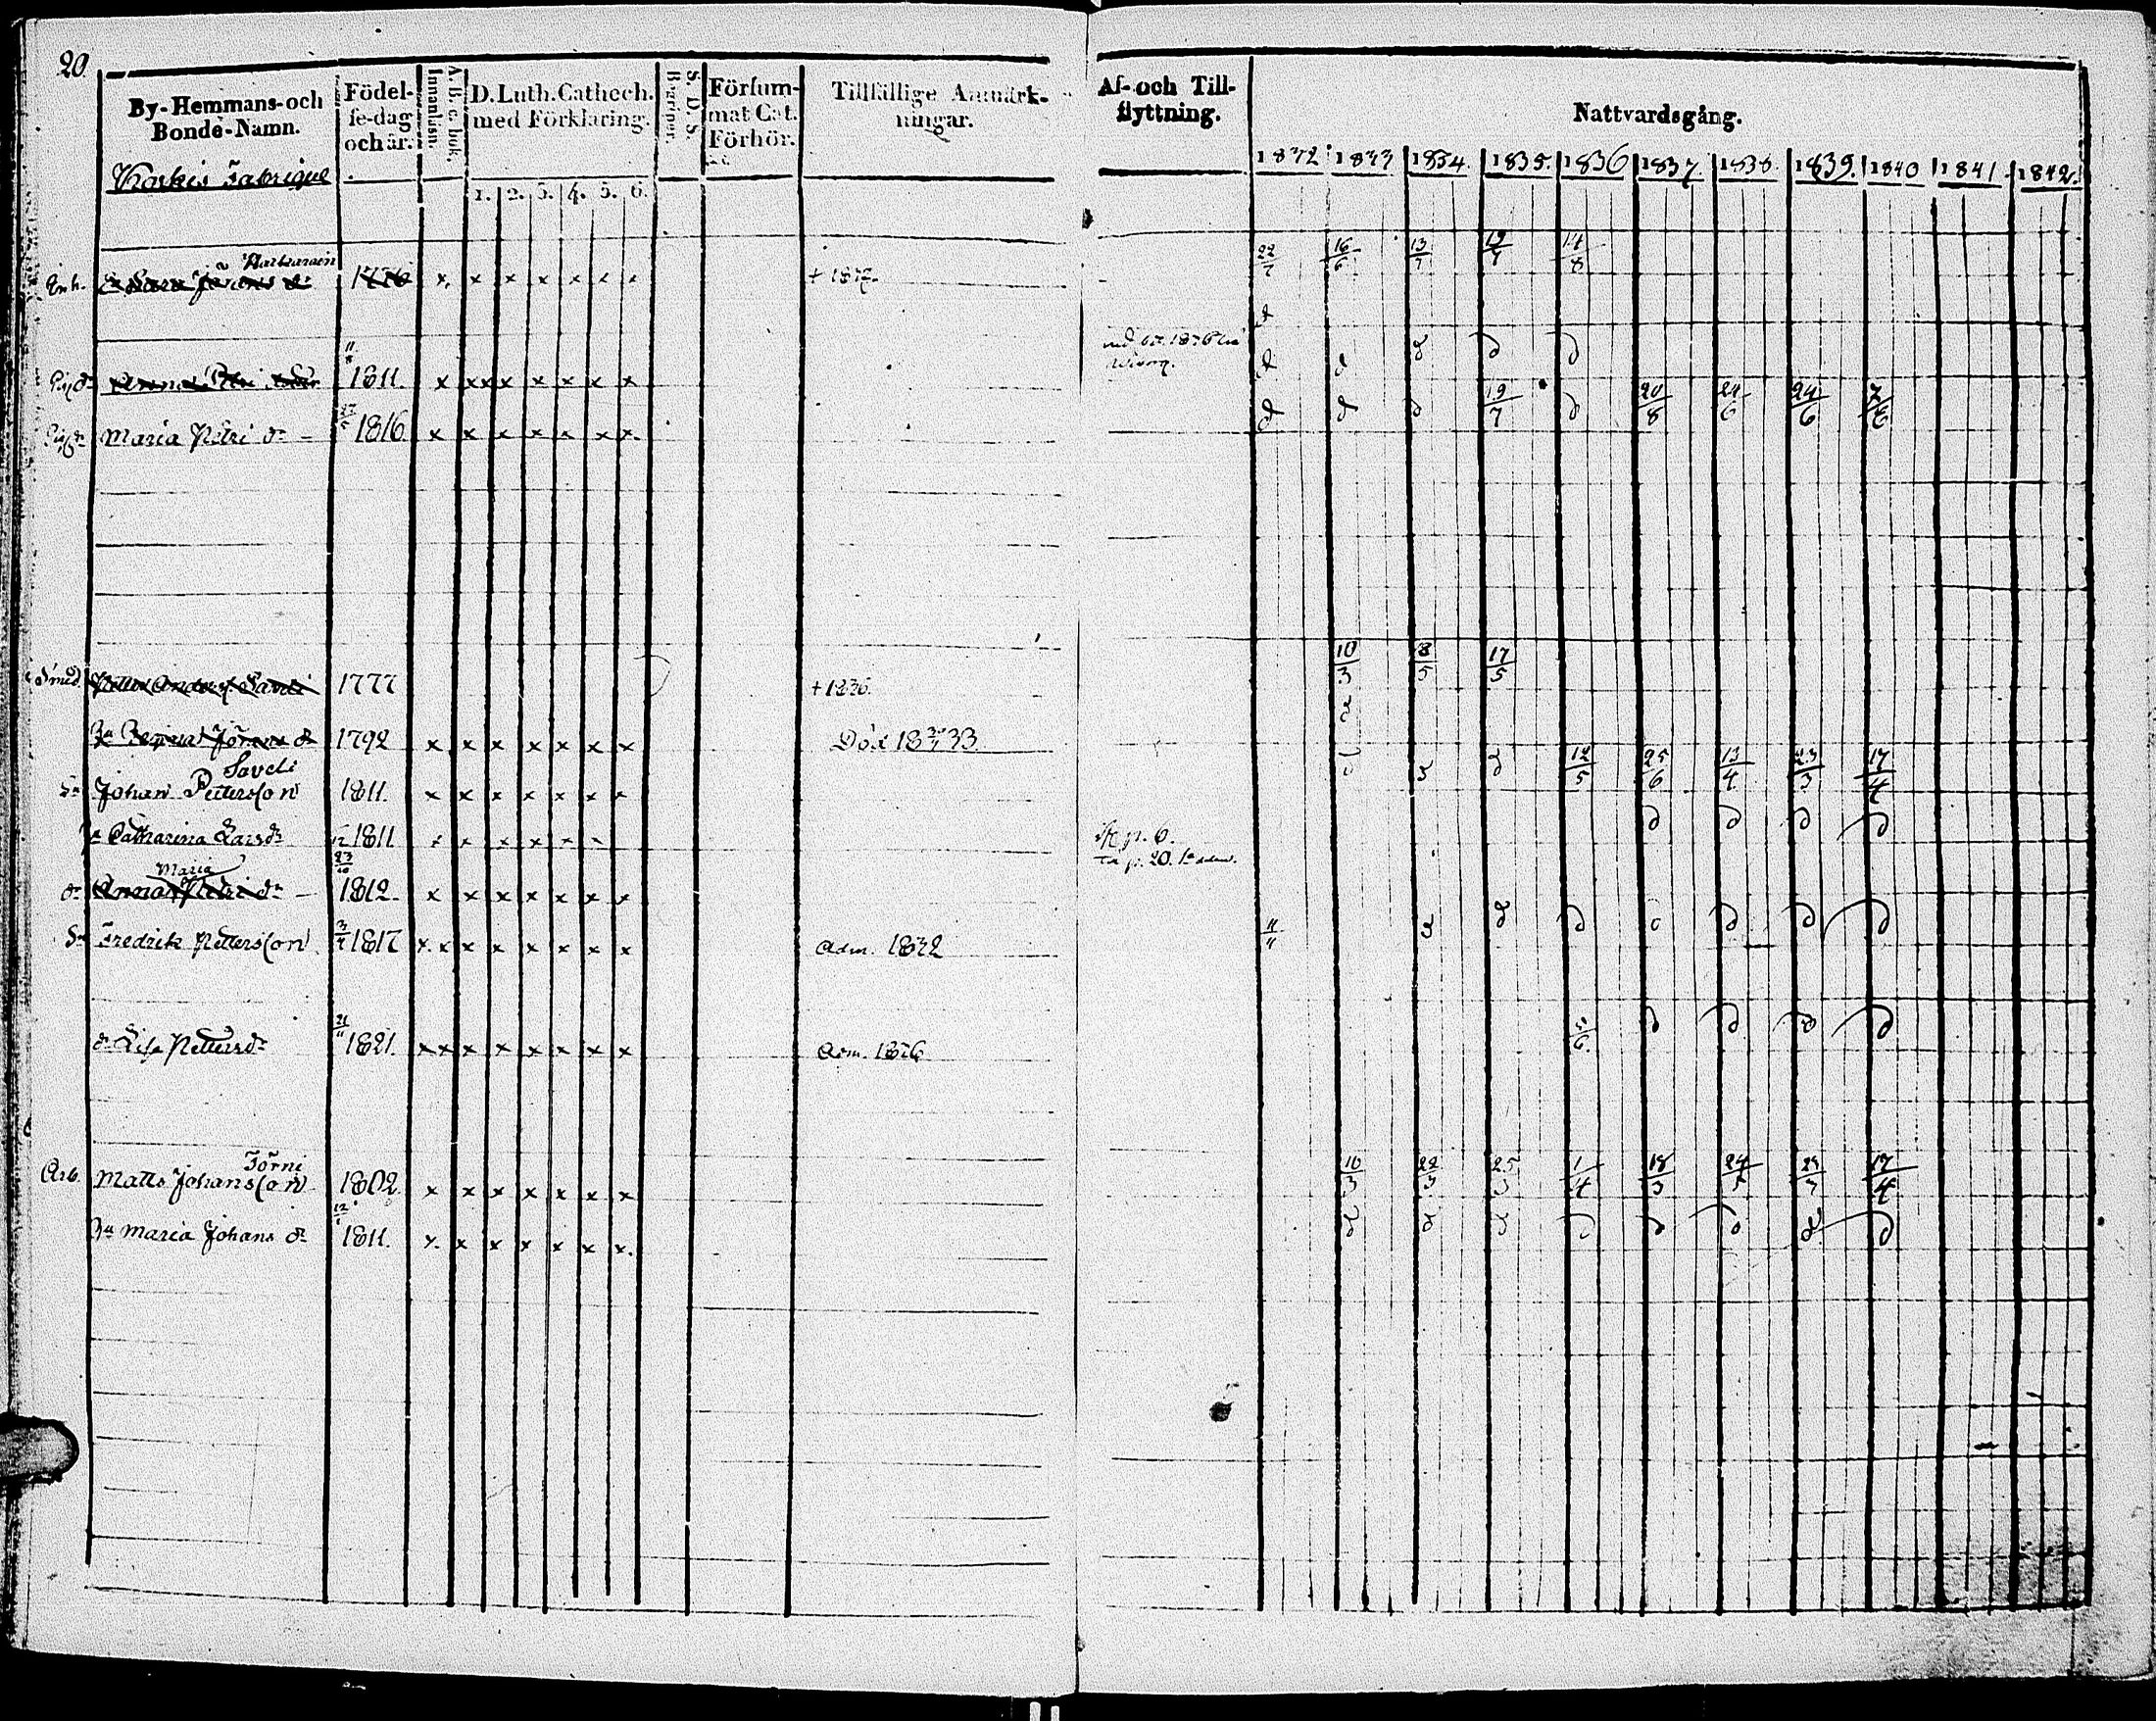 20.
By-Hemmans-och Bonde-Namn.
Födel-se-dag och år.
A. B. c. bok.
Innanläsn.
D. Luth. Cathech. med Förklaring.
1. 2. 3. 4. 5. 6.
S. D. S.
Begriper.
Försum-mat Cat. Förhör.
Tillfällige Anmärk-ningar.
Af- och Till-flyttning.
Nattvardsgång.
1832 1833 1834. 1835. 1836 1837. 1838. 1839. 1840 1841. 1842.
Koskis Fabrique
Enh. Sara Johans dr x x x x x x x 22/7 16/6 13/7 19/7 14/8
d
11/8
Pig. 1811 x x x x x x x x d d d d d
Pig. Maria Petri dr 27/5 1816 x x x x x x x d d d 19/7 d 20/8 24/6 24/6 7/6
Smed. Petter Anders. Saveli 1777 + 1836. 10/3 8/5 17/5
Hu Regina Johans dr 1792 x x x x x x x Död 1833
Saveli
Sn Johan Pettersson 1811. x x x x x x x 12/5 25/6 13/4 23/3 17/4
Hu Catharina Larsdr 1811 x x x x x x p. 6. d d d d
p. 20.
Maria
dr Anna Petri dr 23/10 1812. x x x x x x x
Sn Fredrik Pettersson 1817 x x x x x x x x Adm. 1832 11/11 d d d d d d d
dr Lisa Pettersdr 21/11 1821. x x x x x x x x Adm. 1836 d d d d
Törni
Arb. Matts Johansson 1802. x x x x x x x 10/3 22/3 25/3 1/4 18/3 24/3 17/4
Hu Maria Johans dr 12/1 1811. x x x x x x x d d d d d d d d